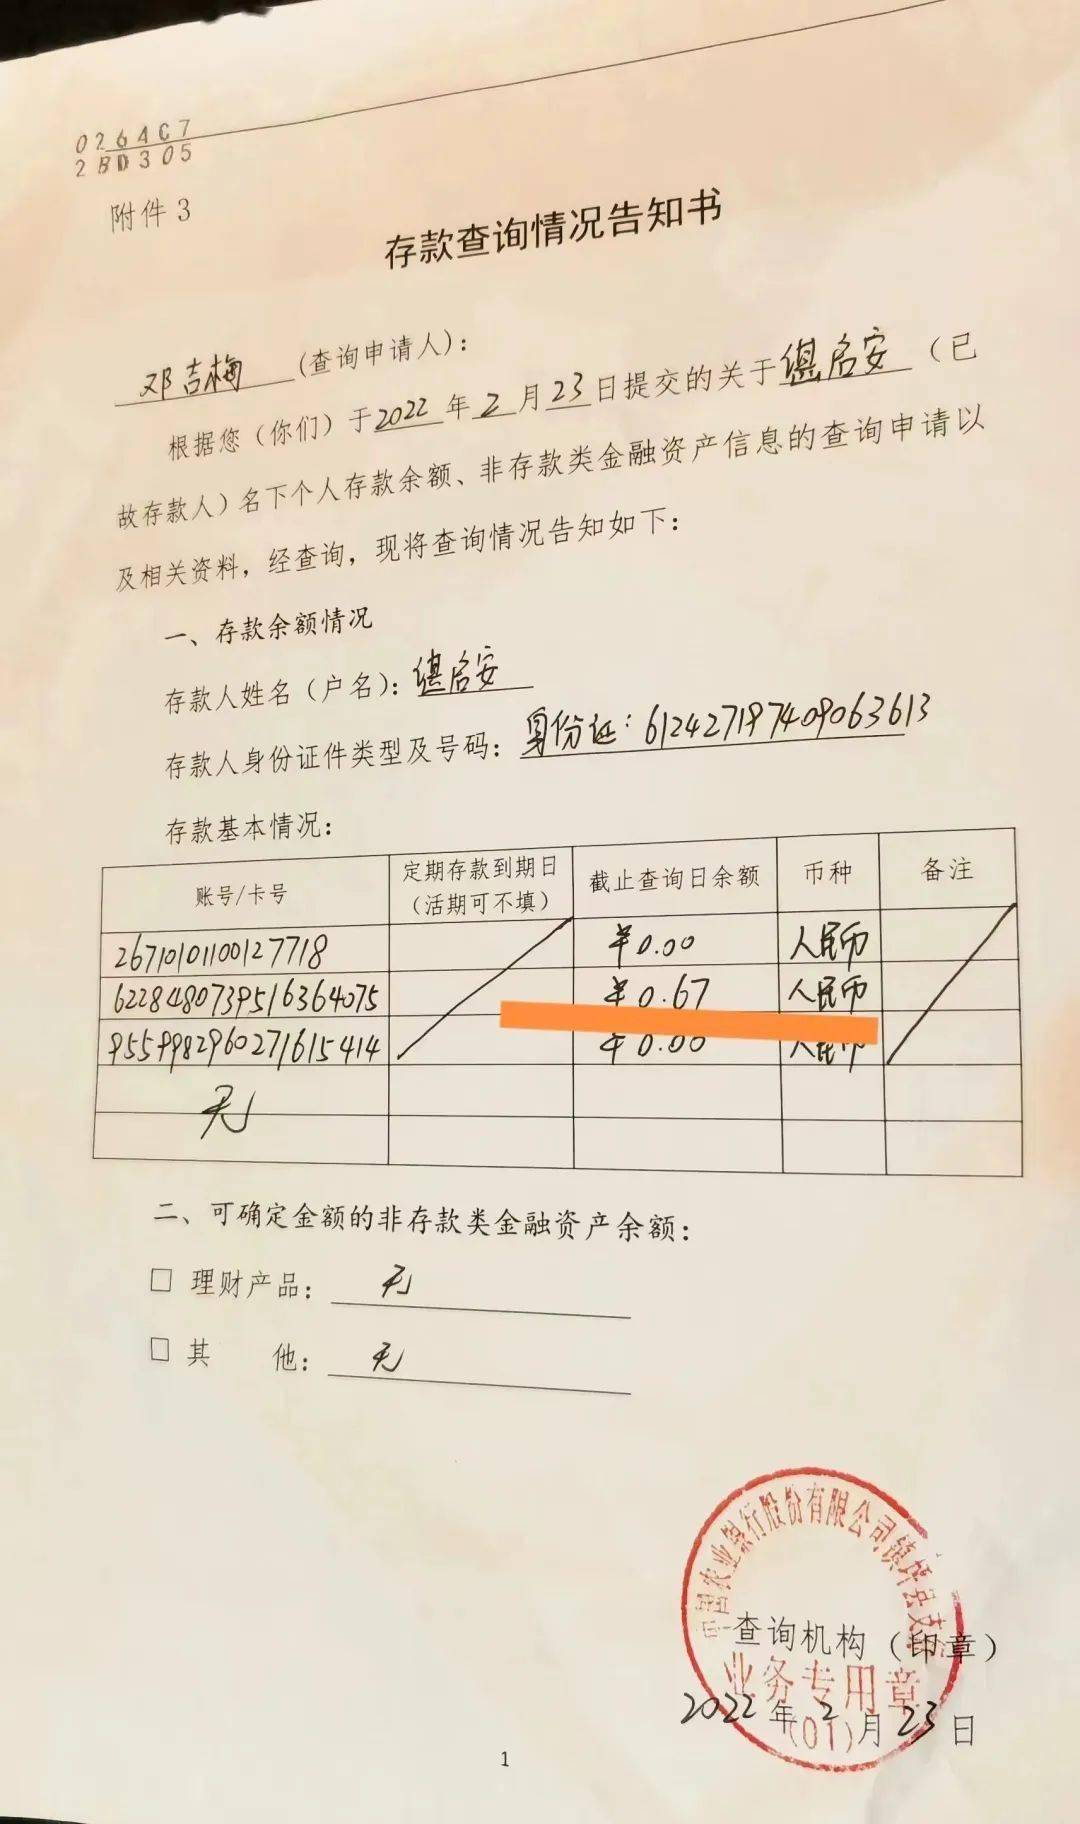 0264C7
2BD305
附件3
存款查询情况告知书
邓吉梅 (查询申请人):
根据您(你们)于2022年2月23日提交的关于谌启安(已
故存款人)名下个人存款余额、非存款类金融资产信息的查询申请以
及相关资料,经查询,现将查询情况告知如下:
一、存款余额情况
存款人姓名(户名):谌启安
存款人身份证件类型及号码:身份证:612427197409063613
存款基本情况:
账号/卡号 定期存款到期日(活期可不填) 截止查询日余额 币种 备注
26710101100127718 ¥0.00 人民币
6228480739516364075 ¥0.67 人民币
9559982960271615414 ¥0.00 人民币
无
二、可确定金额的非存款类金融资产余额:
□ 理财产品: 无
□ 其 他: 无
中国农业银行股份有限公司镇坪县支行
查询机构(印章)
业务专用章
2022年2月23日
(01)
1